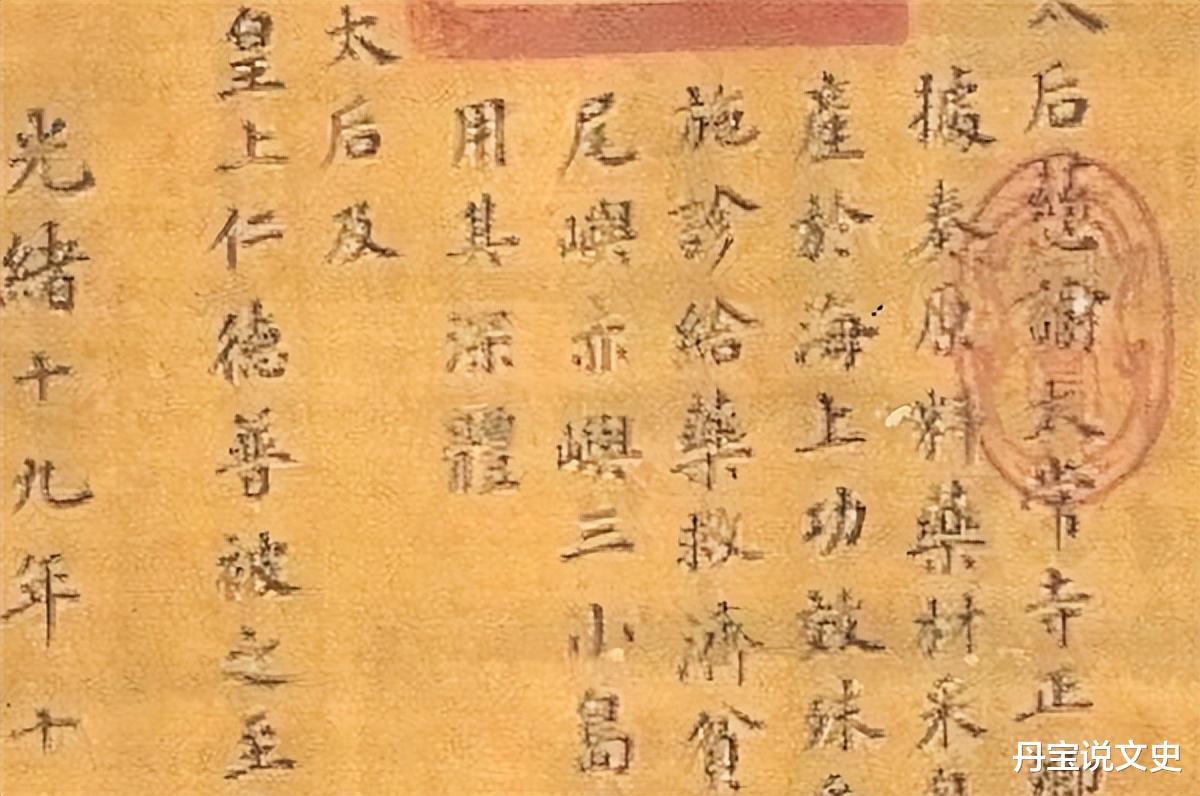 太后慈諭太常寺正卿
據奏原料藥材采
產於海上功效殊
施診給藥救濟貧
尾嶼亦嶼三小島
用其深體
太后及
皇上仁德普被之至
光緒十九年十
丹宝说文史